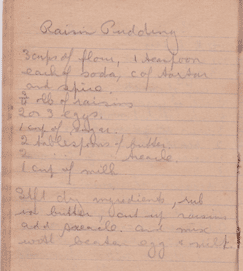 Raisin Pudding
3 cups of flour, 1 teaspoon
each of soda, c of tartar
and spice
½ lb of raisins
2 or 3 eggs.
1 cup of sugar.
2 tablespoons of butter
2
1 cup of milk
Sift dry ingredients, rub
in butter, cut up raisins
add and mix
with beaten egg & milk.